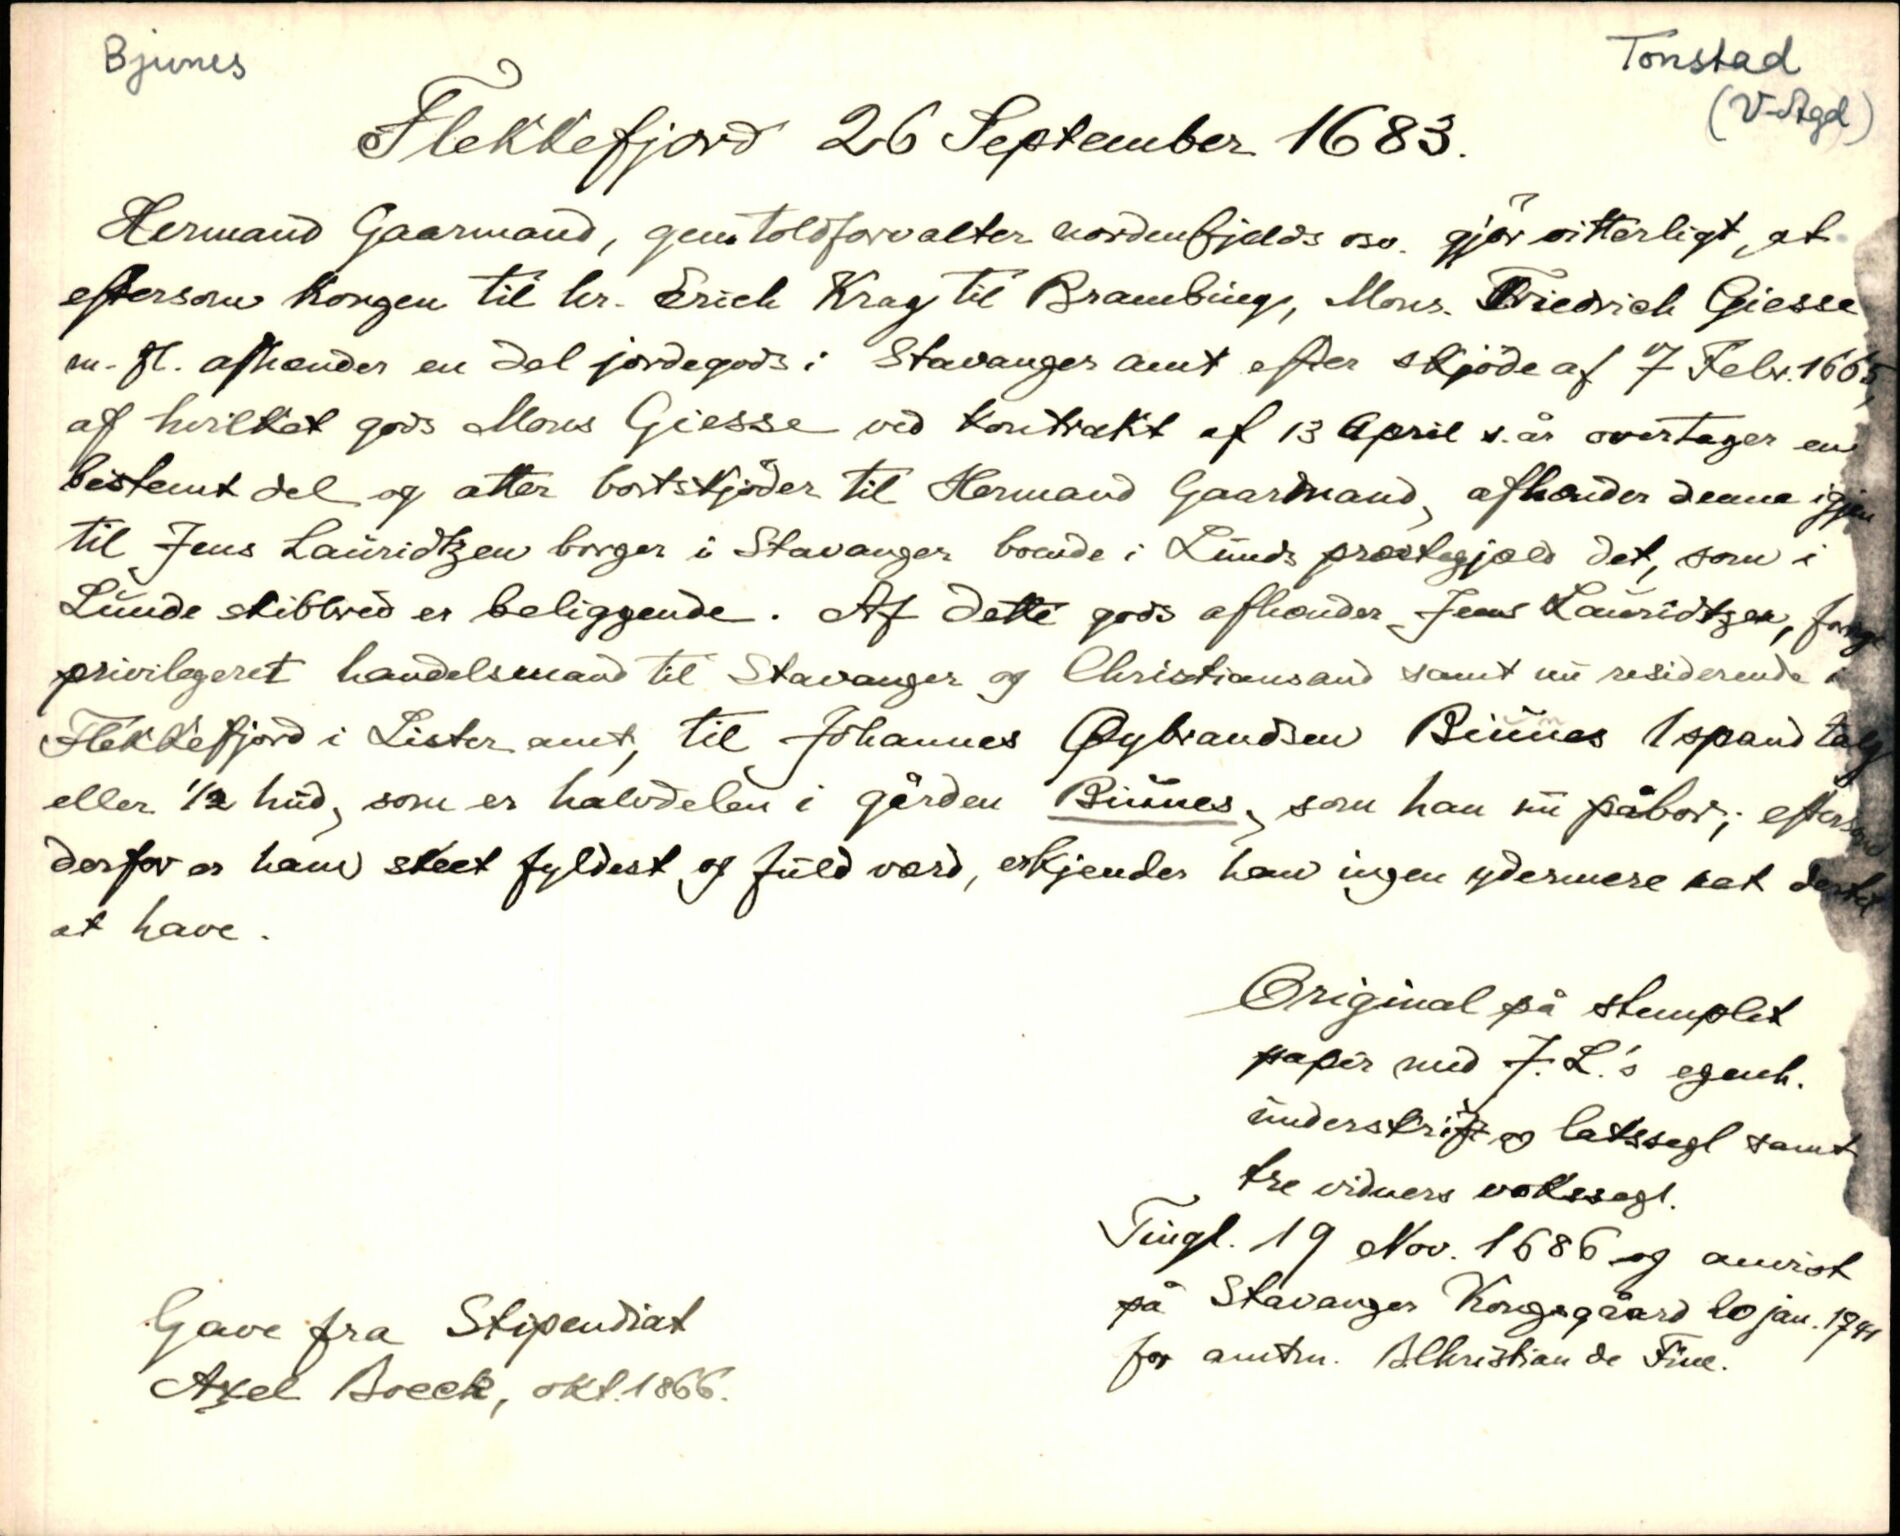 Bjunes
Tonstad
(V-Agd)
Flekkefjord 26 September 1683.
Hermand Gaarmand, gen. toldforvalter nordenfjelds osv. gjör vitterligt, at
eftersom Kongen til hr. Erich Krag til Brambing, Mons. Friedrich Giesse
m. fl. afhænder en del jordegods i Stavanger amt efter skjöde af 7 Febr. 1665,
af hvilket gods Mons Giesse ved kontrakt af 13 April s. år overtager en
bestemt del og atter bortskjöder til Hermand Gaarmand, afhænder denne igjen
til Jens Lauridtzen borger i Stavanger boende i Lunds præstegjæld det, som i
Lunde skibbred er beliggende. Af dette gods afhænder Jens Lauridtzen,
privilegeret handelsmand til Stavanger og Christiansand samt nu residerende i
Flekkefjord i Lister amt, til Johannes Øybrandsen Biunes 1 spand talg
eller 1/2 hud, som er halvdelen i gården Biunes, som han nu påbor; eftersom
derfor er ham skeet fyldest og fuld værd, erkjender han ingen ydermere ret dertil
at have.
Original på stemplet
papir med J. L.'s egenh.
underskrift og laksegl samt
tre vidners vokssegl.
Tingl. 19 Nov. 1686 og anvist
på Stavanger Kongsgåard 20 jan. 1741
for amtm. BChristian de Fine.
Gave fra Stipendiat
Axel Boeck, okt. 1866.